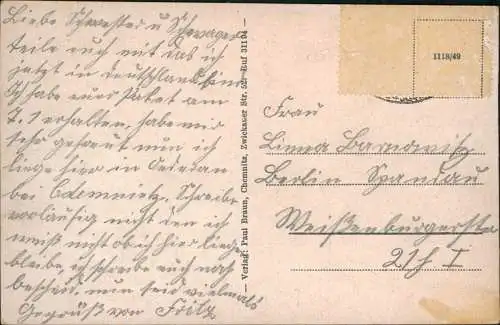 Liebe Schwester u Schwager
teile euch mit das ich
jetzt in Deutschland bin
Ich habe euer Paket am
7.1 erhalten, habe mir
sehr gefreut nun ich
liege hier in Oederan
bei Chemnietz. Schreibe
vorläufig nicht den ich
weiß nicht ob ich hier liegen
bleibe, ich schreibe euch noch
bescheid, nun seid vielmals
Gegrüß von Fritz
— Verlag: Paul Braun, Chemnitz, Zwickauer Str. 52. Ruf 31104 —
1118/49
Frau
Barnowitz
Berlin Spandau
Weißenburgerstr
21 I